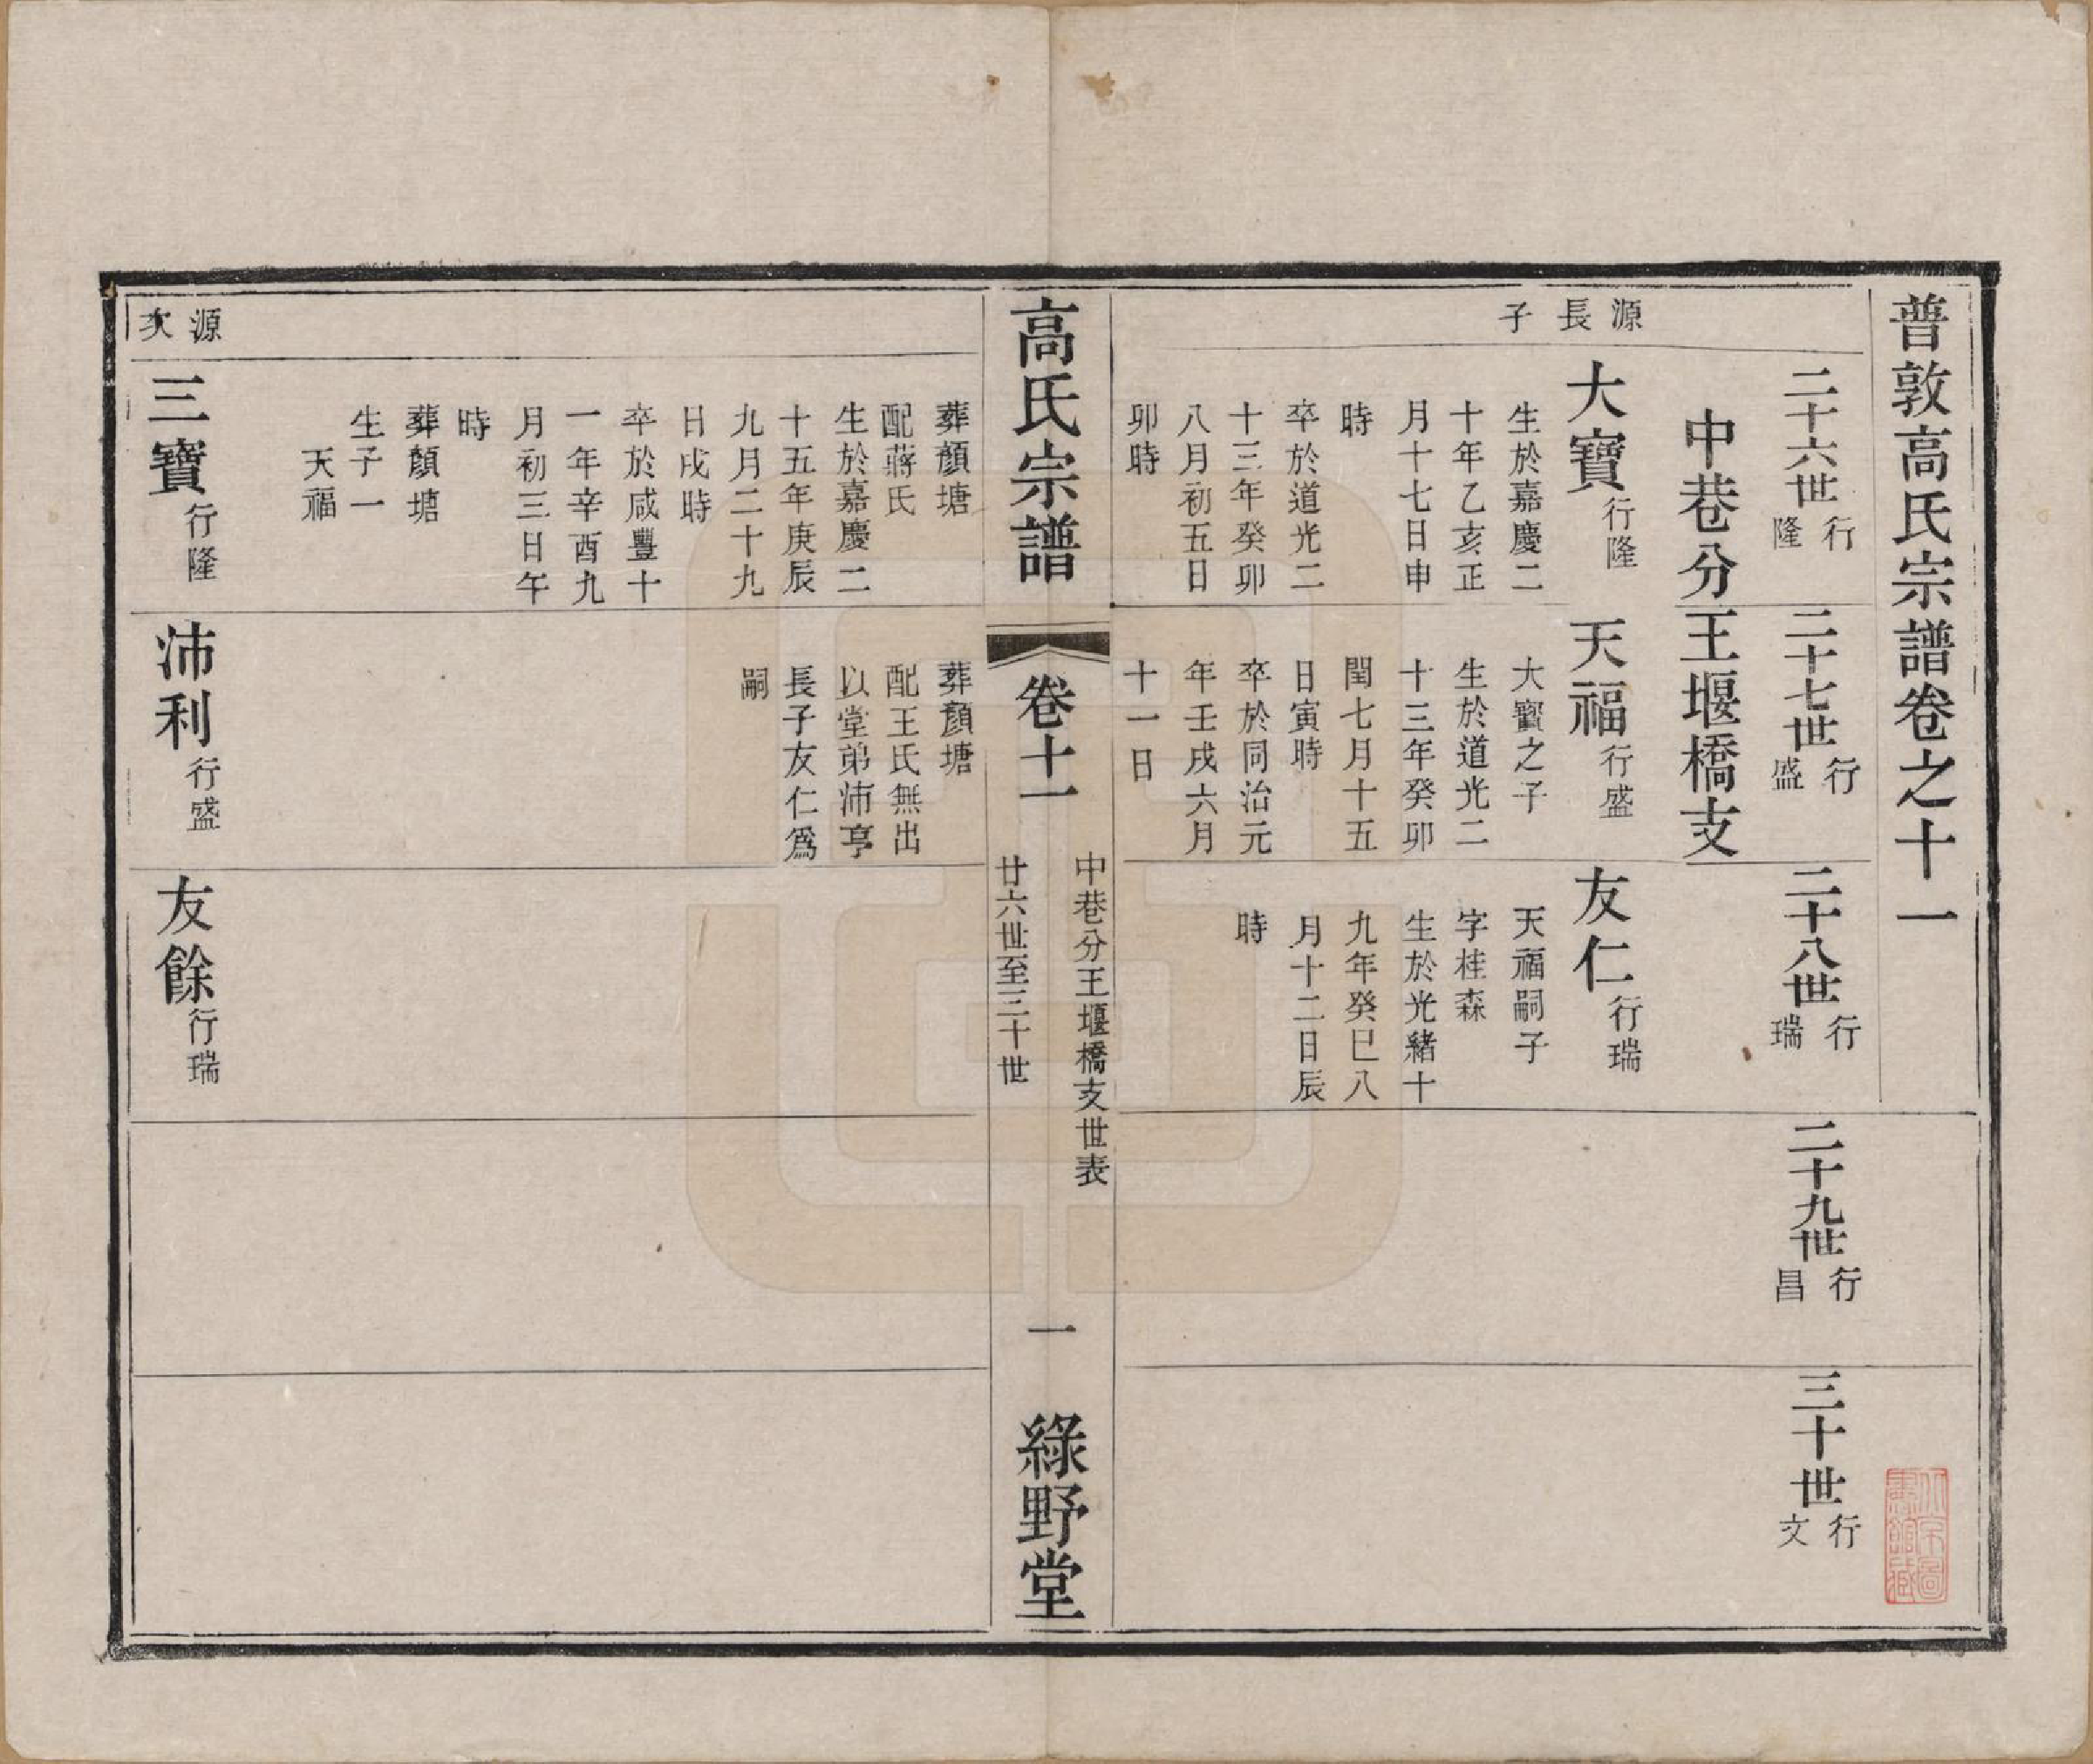 普敦高氏宗譜卷之十一
二十六世行隆
二十七世行盛
二十八世行瑞
二十九世行昌
三十世行文
中巷分王堰橋支
源長子
大寶行隆
生於嘉慶二
十年乙亥正
月十七日申
時
卒於道光二
十三年癸卯
八月初五日
卯時
天福行盛
大寶之子
生於道光二
十三年癸卯
閏七月十五
日寅時
卒於同治元
年壬戌六月
十一日
友仁行瑞
天福嗣子
字桂森
生於光緒十
九年癸巳八
月十二日辰
時
高氏宗譜
卷十一
中巷分王堰橋支世表
廿六世至三十世
一
綠野堂
葬顏塘
配蔣氏
生於嘉慶二
十五年庚辰
九月二十九
日戌時
卒於咸豐十
一年辛酉九
月初三日午
時
葬顏塘
生子一
天福
葬顏塘
配王氏無出
以堂弟沛亨
長子友仁爲
嗣
源次
三寶行隆
沛利行盛
友餘行瑞